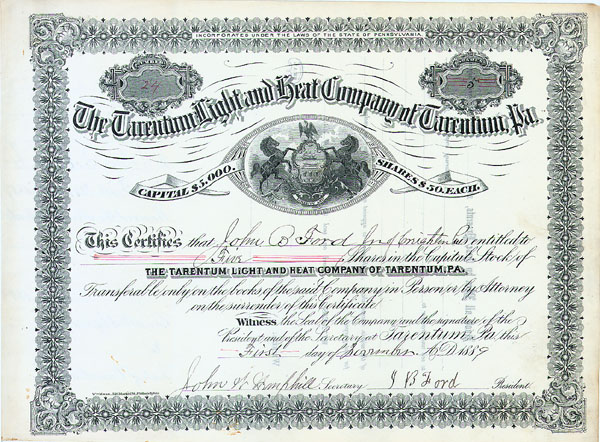 INCORPORATED UNDER THE LAWS OF THE STATE OF PENNSYLVANIA.
29 5
The Tarentum Light and Heat Company of Tarentum, Pa.
CAPITAL $5,000. SHARES $50. EACH.
This Certifies that John B Ford Jr of Creighton Pa is entitled to
Five Shares in the Capital Stock of
THE TARENTUM LIGHT AND HEAT COMPANY OF TARENTUM, PA.
Transferable only on the books of the said Company in Person or by Attorney
on the surrender of this Certificate
Witness, the Seal of the Company and the signature of the
President and of the Secretary at Tarentum, Pa. this
First day of November A.D. 1889
John W Hemphill Secretary J B Ford President